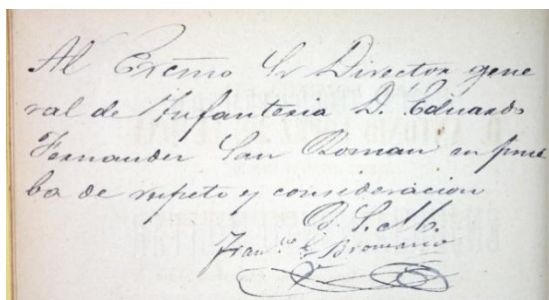 Al Excmo Sr Director gene
ral de Infanteria D. Eduardo
Fernandez San Roman en prue
ba de respeto y consideracion
B. S. M.
Fran.co